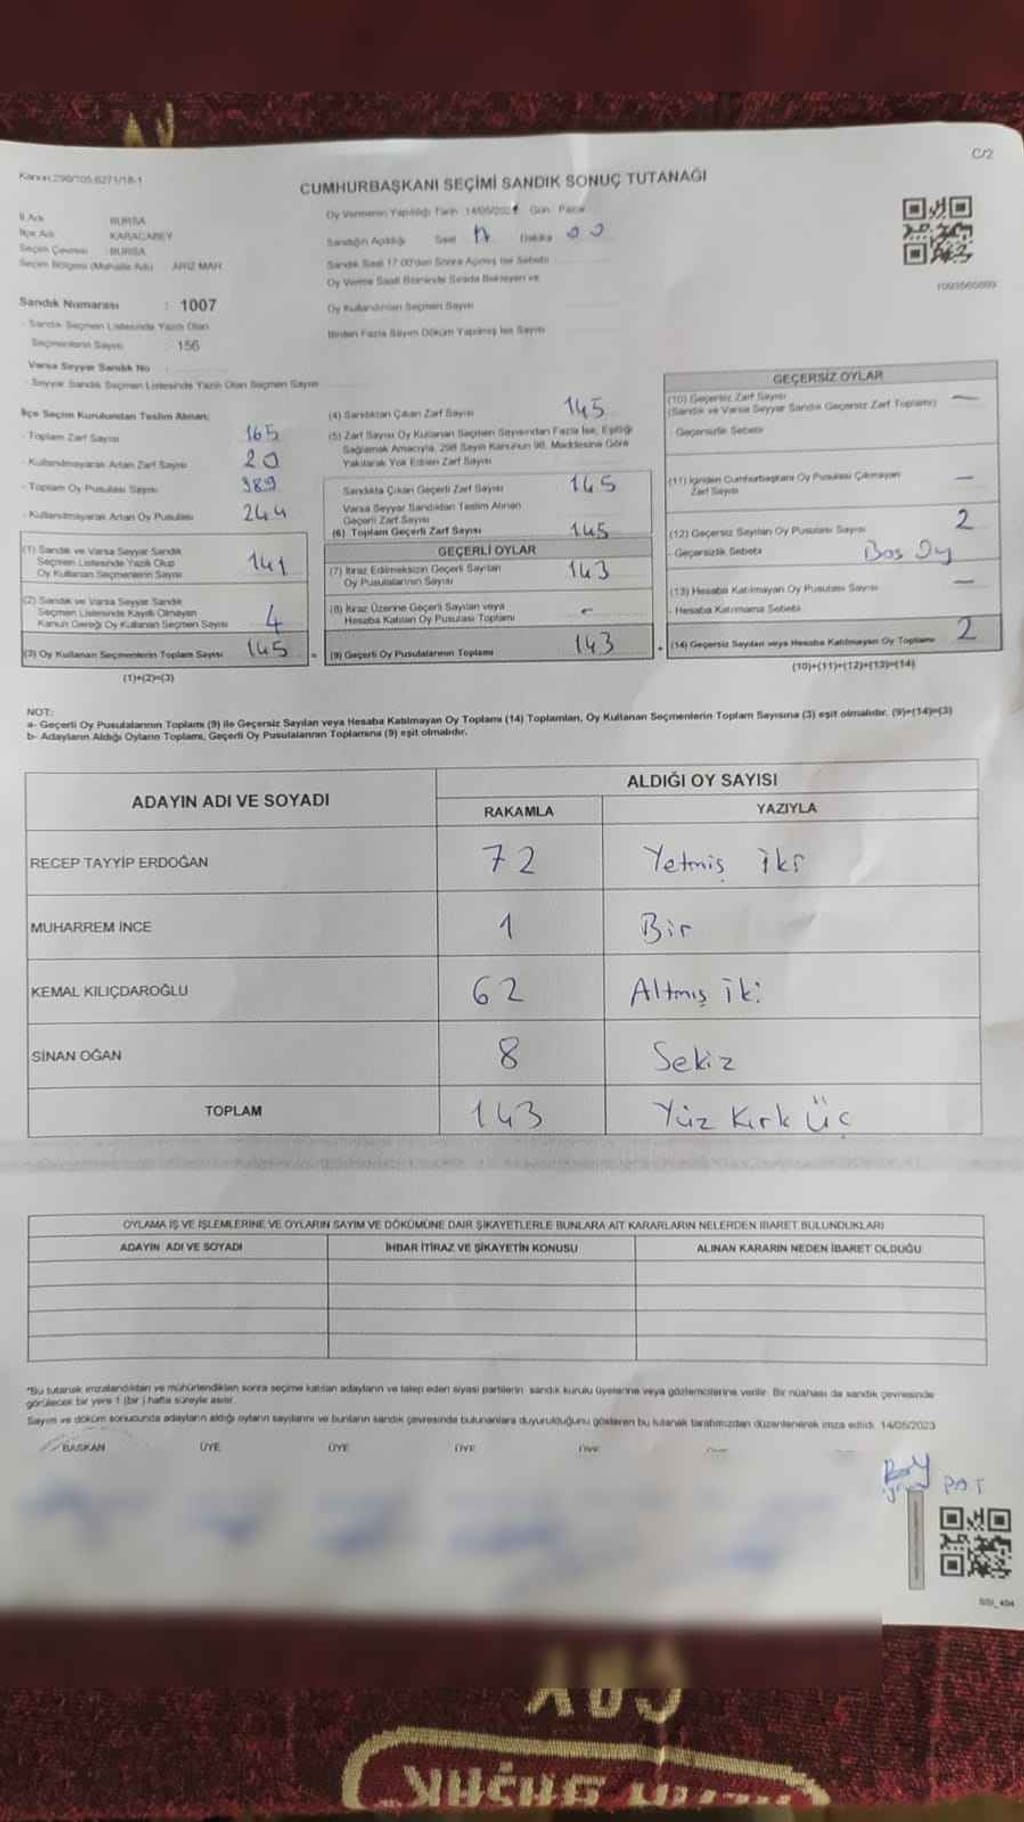 C/2
CUMHURBAŞKANI SEÇİMİ SANDIK SONUÇ TUTANAĞI
İl Adı BURSA
İlçe Adı KARACABEY
Seçim Çevresi BURSA
Seçim Bölgesi (Mahalle Adı) ARIZ MAH
Sandık Numarası : 1007
- Sandık Seçmen Listesinde Yazılı Olan
Seçmenlerin Sayısı 156
Varsa Seyyar Sandık No
- Seyyar Sandık Seçmen Listesinde Yazılı Olan Seçmen Sayısı
Oy Vermenin Yapıldığı Tarih Gün Pazar
Sandığın Açıldığı Saat 17 Dakika 00
Sandık Saat 17.00'den Sonra Açılmış İse Sebebi
Oy Kullandırılan Seçmen Sayısı
Birden Fazla Sayım Döküm Yapılmış İse Sayısı
İlçe Seçim Kurulundan Teslim Alınan;
- Toplam Zarf Sayısı 165
- Kullanılmayarak Artan Zarf Sayısı 20
- Toplam Oy Pusulası Sayısı 389
- Kullanılmayarak Artan Oy Pusulası 244
(1) Sandık ve Varsa Seyyar Sandık
Seçmen Listesinde Yazılı Olup
Oy Kullanan Seçmenlerin Sayısı 141
(2) Sandık ve Varsa Seyyar Sandık
Seçmen Listesinde Kayıtlı Olmayan
Kanun Gereği Oy Kullanan Seçmen Sayısı 4
(3) Oy Kullanan Seçmenlerin Toplam Sayısı 145
(1)+(2)=(3)
(4) Sandıktan Çıkan Zarf Sayısı 145
(5) Zarf Sayısı Oy Kullanan Seçmen Sayısından Fazla İse, Eşitliği
Sağlamak Amacıyla, 298 Sayılı Kanunun 98. Maddesine Göre
Yakılarak Yok Edilen Zarf Sayısı
Sandıkta Çıkan Geçerli Zarf Sayısı 145
Varsa Seyyar Sandıktan Teslim Alınan
Geçerli Zarf Sayısı
(6) Toplam Geçerli Zarf Sayısı 145
GEÇERLİ OYLAR
(7) İtiraz Edilmeksizin Geçerli Sayılan
Oy Pusulalarının Sayısı 143
(8) İtiraz Üzerine Geçerli Sayılan veya
Hesaba Katılan Oy Pusulası Toplamı -
(9) Geçerli Oy Pusulalarının Toplamı 143
GEÇERSİZ OYLAR
(10) Geçersiz Zarf Sayısı —
(Sandık ve Varsa Seyyar Sandık Geçersiz Zarf Toplamı)
Geçersizlik Sebebi
(11) İçinden Cumhurbaşkanı Oy Pusulası Çıkmayan
Zarf Sayısı —
(12) Geçersiz Sayılan Oy Pusulası Sayısı 2
- Geçersizlik Sebebi Boş Oy
(13) Hesaba Katılmayan Oy Pusulası Sayısı —
- Hesaba Katılmama Sebebi
(14) Geçersiz Sayılan veya Hesaba Katılmayan Oy Toplamı 2
(10)+(11)+(12)+(13)=(14)
NOT:
a- Geçerli Oy Pusulalarının Toplamı (9) ile Geçersiz Sayılan veya Hesaba Katılmayan Oy Toplamı (14) Toplamları, Oy Kullanan Seçmenlerin Toplam Sayısına (3) eşit olmalıdır. (9)+(14)=(3)
b- Adayların Aldığı Oyların Toplamı, Geçerli Oy Pusulalarının Toplamına (9) eşit olmalıdır.
ADAYIN ADI VE SOYADI
ALDIĞI OY SAYISI
RAKAMLA YAZIYLA
RECEP TAYYİP ERDOĞAN 72 Yetmiş iki
MUHARREM İNCE 1 Bir
KEMAL KILIÇDAROĞLU 62 Altmış iki
SİNAN OĞAN 8 Sekiz
TOPLAM 143 Yüz Kırk Üç
OYLAMA İŞ VE İŞLEMLERİNE VE OYLARIN SAYIM VE DÖKÜMÜNE DAİR ŞİKAYETLERLE BUNLARA AİT KARARLARIN NELERDEN İBARET BULUNDUKLARI
ADAYIN ADI VE SOYADI İHBAR İTİRAZ VE ŞİKAYETİN KONUSU ALINAN KARARIN NEDEN İBARET OLDUĞU
*Bu tutanak imzalandıktan ve mühürlendikten sonra seçime katılan adayların ve talep eden siyasi partilerin sandık kurulu üyelerine veya gözlemcilerine verilir. Bir nüshası da sandık çevresinde
görülecek bir yere 1 (bir) hafta süreyle asılır.
Sayım ve döküm sonucunda adayların aldığı oyların sayılarını ve bunların sandık çevresinde bulunanlara duyurulduğunu gösteren bu tutanak tarafımızdan düzenlenerek imza edildi. 14/05/2023
BAŞKAN ÜYE ÜYE ÜYE ÜYE